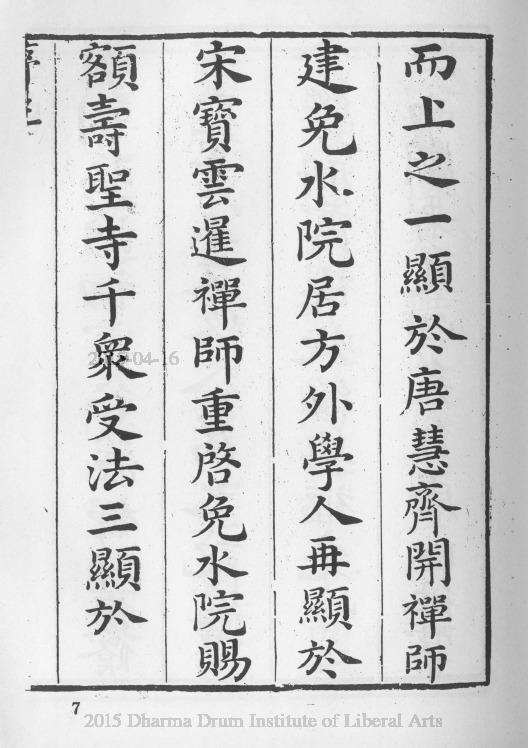 而上之一顯於唐慧齊開禪師
建免水院居方外學人再顯於
宋寶雲暹禪師重啓免水院賜
額壽聖寺千衆受法三顯於
7
2015 Dharma Drum Institute of Liberal Arts